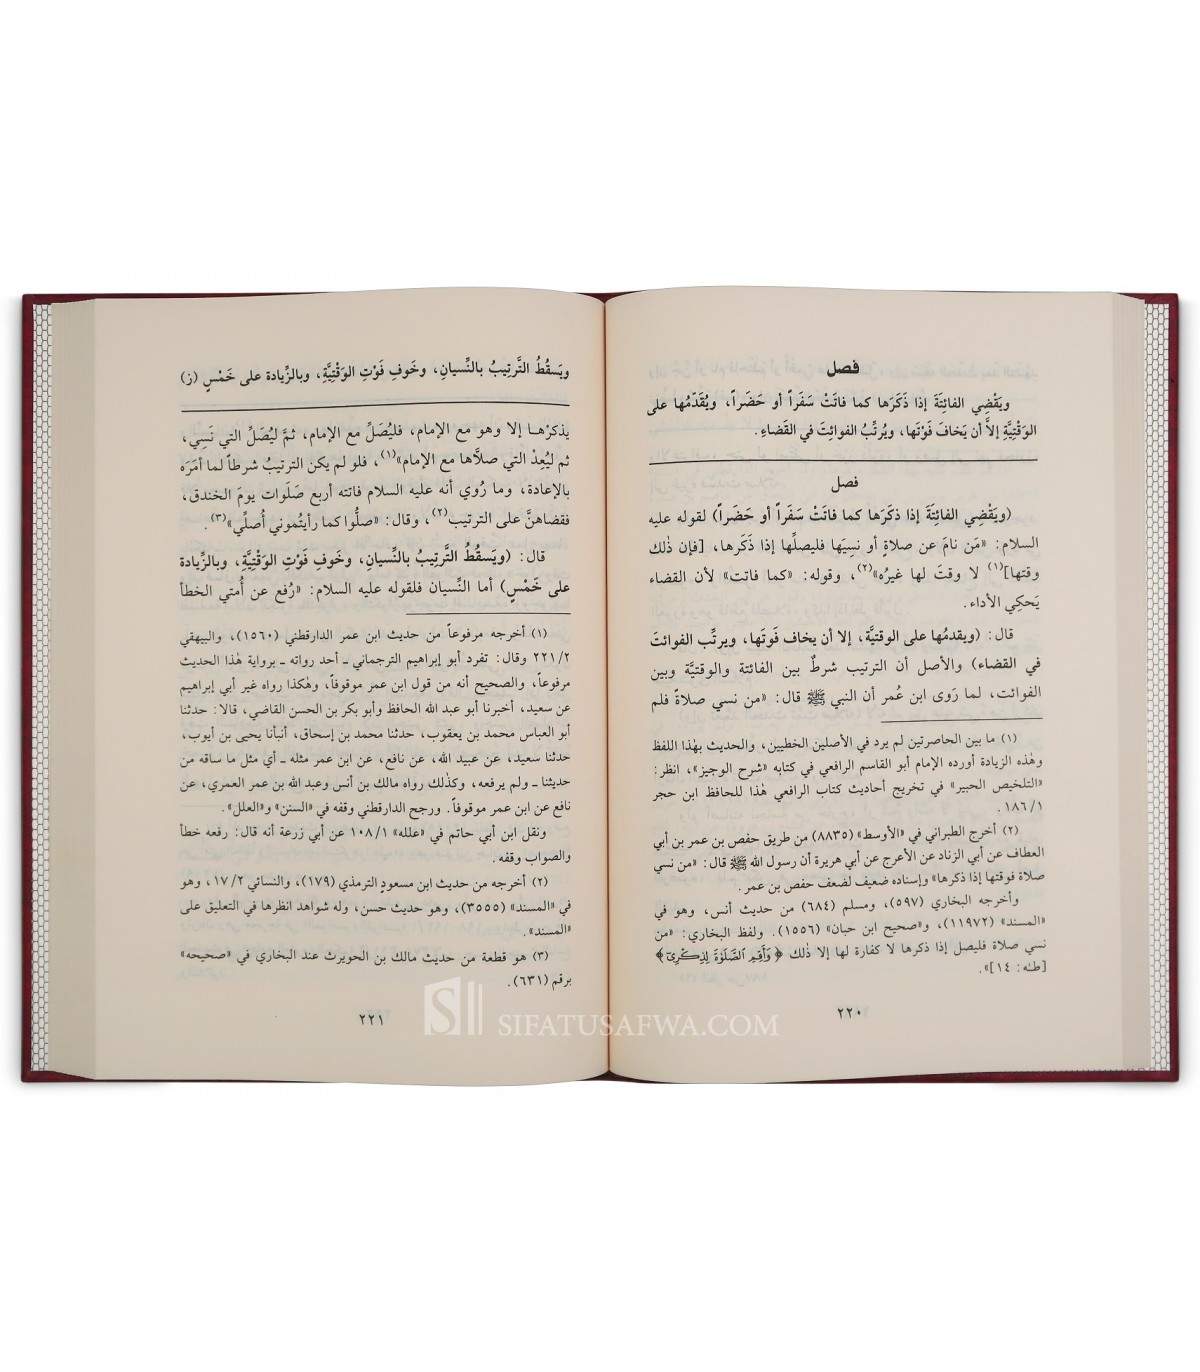 فصل
ويَقْضِي الفائِتَةَ إذا ذَكَرَها كما فاتَتْ سَفَراً أو حَضَراً، ويُقَدِّمُها على
الوَقْتِيَّةِ إلاَّ أن يَخافَ فَوْتَها، ويُرتِّبُ الفوائِتَ في القَضاءِ.
فصل
(ويَقْضِي الفائِتَةَ إذا ذكَرَها كما فاتَتْ سَفَراً أو حَضَراً) لقوله عليه
السلام: «مَن نامَ عن صلاةٍ أو نسِيَها فليصلِّها إذا ذَكَرَها، [فإن ذٰلك
وقتها](١) لا وقتَ لها غيرُه»(٢)، وقوله: «كما فاتت» لأن القضاء
يَحكِي الأداء.
قال: (ويقدمُها على الوقتيَّة، إلا أن يخاف فَوتَها، ويرتِّب الفوائتَ
في القضاء) والأصل أن الترتيب شرطٌ بين الفائتة والوقتيَّة وبين
الفوائت، لما رَوى ابن عُمر أن النبي ﷺ قال: «من نسي صلاةً فلم
(١) ما بين الحاصرتين لم يرد في الأصلين الخطيين، والحديث بهٰذا اللفظ
وهٰذه الزيادة أورده الإمام أبو القاسم الرافعي في كتابه «شرح الوجيز»، انظر:
«التلخيص الحبير» في تخريج أحاديث كتاب الرافعي هٰذا للحافظ ابن حجر
١/ ١٨٦.
(٢) أخرج الطبراني في «الأوسط» (٨٨٣٥) من طريق حفص بن عمر بن أبي
العطاف عن أبي الزناد عن الأعرج عن أبي هريرة أن رسول الله ﷺ قال: «من نسي
صلاة فوقتها إذا ذكرها» وإسناده ضعيف لضعف حفص بن عمر.
وأخرجه البخاري (٥٩٧)، ومسلم (٦٨٤) من حديث أنس، وهو في
«المسند» (١١٩٧٢)، و«صحيح ابن حبان» (١٥٥٦). ولفظ البخاري: «من
نسي صلاة فليصل إذا ذكرها لا كفارة لها إلا ذلك ﴿وَأَقِمِ ٱلصَّلَوٰةَ لِذِكْرِىٓ﴾
[طٰه: ١٤]».
٢٢٠
ويَسقُطُ التَّرتِيبُ بالنِّسيانِ، وخَوفِ فَوْتِ الوَقْتِيَّةِ، وبالزِّيادة على خَمْسٍ (ز)
يذكرْهـا إلا وهو مع الإمام، فليُصَلِّ مع الإمام، ثمَّ ليُصَلِّ التي نَسِي،
ثم ليُعِدْ التي صلاَّها مع الإمام»(١)، فلو لم يكن الترتيبُ شرطاً لما أمَرَه
بالإعادة، وما رُوي أنه عليه السلام فاتته أربع صَلَوات يومَ الخندق،
فقضاهنَّ على الترتيب(٢)، وقال: «صلُّوا كما رأيتُموني أُصلِّي»(٣).
قال: (ويَسقُطُ التَّرتِيبُ بالنِّسيانِ، وخَوفِ فَوْتِ الوَقْتِيَّةِ، وبالزِّيادة
على خَمْسٍ) أما النِّسيان فلقوله عليه السلام: «رُفع عن أُمتي الخطأ
(١) أخرجه مرفوعاً من حديث ابن عمر الدارقطني (١٥٦٠)، والبيهقي
٢/ ٢٢١ وقال: تفرد أبو إبراهيم الترجماني ـ أحد رواته ـ برواية هٰذا الحديث
مرفوعاً، والصحيح أنه من قول ابن عمر موقوفاً، وهٰكذا رواه غير أبي إبراهيم
عن سعيد، أخبرنا أبو عبد الله الحافظ وأبو بكر بن الحسن القاضي، قالا: حدثنا
أبو العباس محمد بن يعقوب، حدثنا محمد بن إسحاق، أنبأنا يحيى بن أيوب،
حدثنا سعيد، عن عبيد الله، عن نافع، عن ابن عمر مثله ـ أي مثل ما ساقه من
حديثنا ـ ولم يرفعه، وكذلك رواه مالك بن أنس وعبد الله بن عمر العمري، عن
نافع عن ابن عمر موقوفاً. ورجح الدارقطني وقفه في «السنن» و«العلل».
ونقل ابن أبي حاتم في «علله» ١/ ١٠٨ عن أبي زرعة أنه قال: رفعه خطأ
والصواب وقفه.
(٢) أخرجه من حديث ابن مسعودٍ الترمذي (١٧٩)، والنسائي ٢/ ١٧، وهو
في «المسند» (٣٥٥٥)، وهو حديث حسن، وله شواهد انظرها في التعليق على
«المسند».
(٣) هو قطعة من حديث مالك بن الحويرث عند البخاري في «صحيحه»
برقم (٦٣١).
٢٢١
SIFATUSAFWA.COM